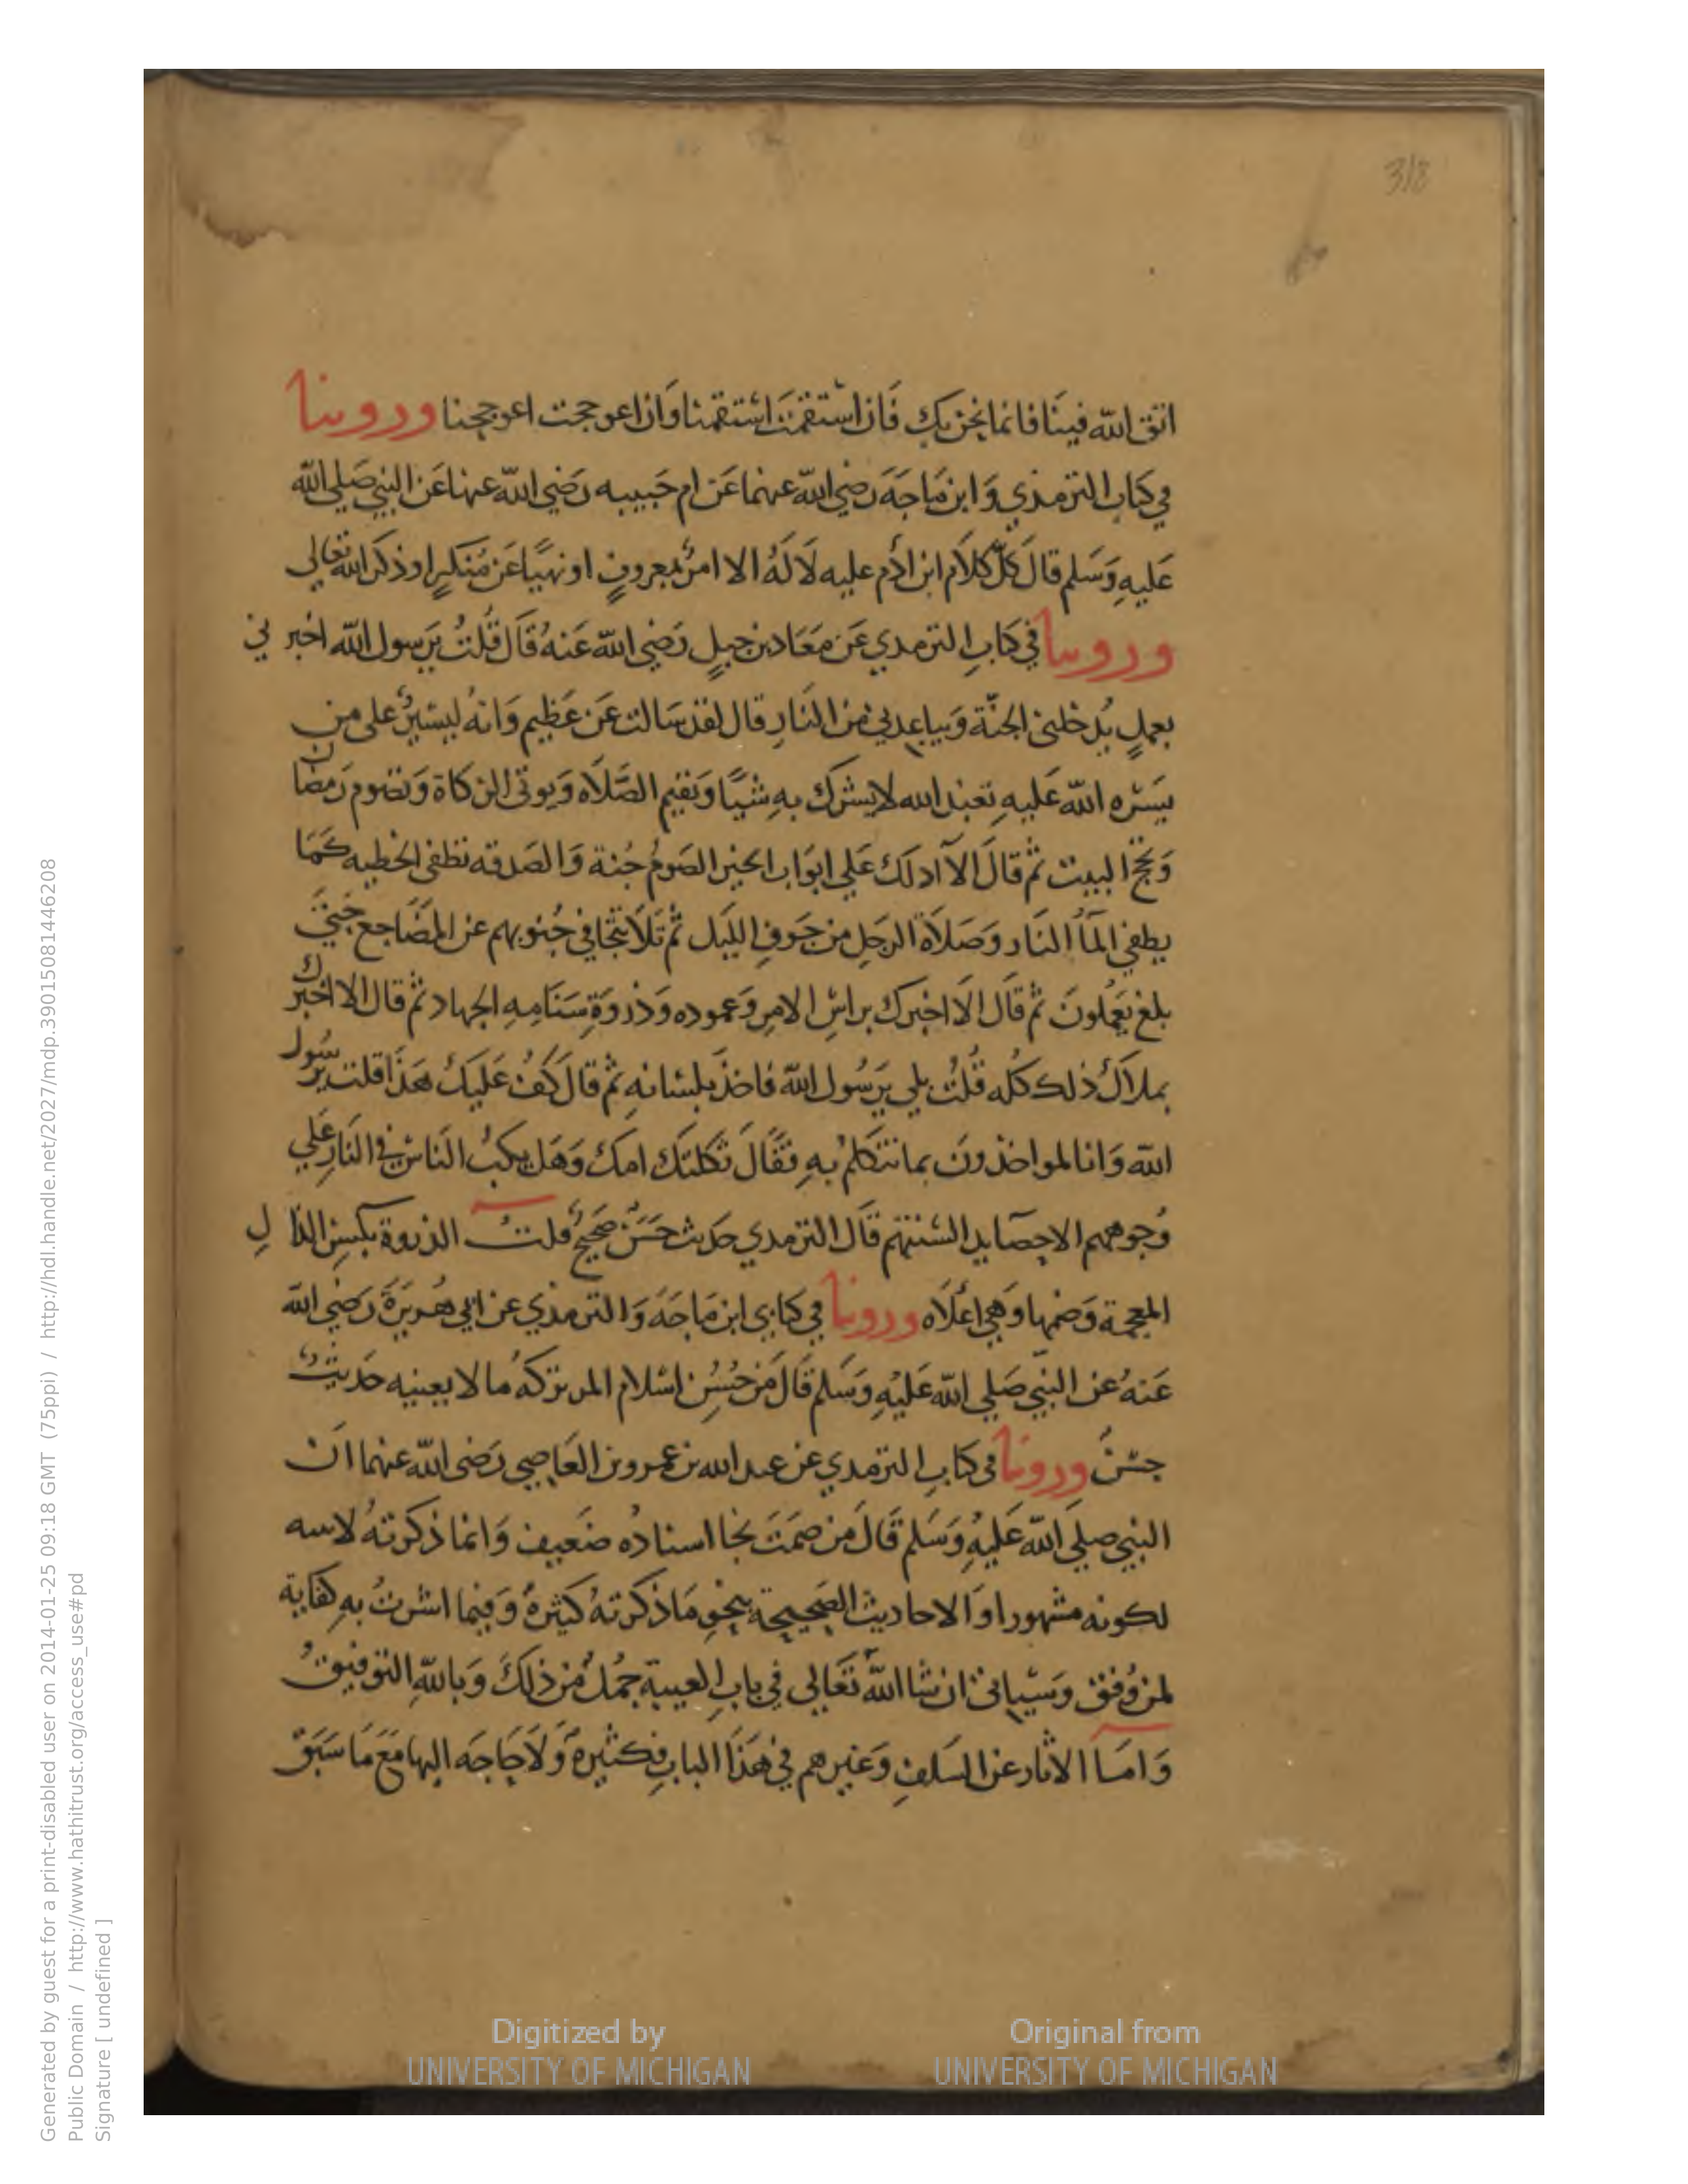 318
اتق الله فينا فانما نحن بك فان استقمت استقمنا وان اعوججت اعوججنا وروينا
في كتاب الترمذي وابن ماجه رضي الله عنهما عن ام حبيبه رضي الله عنها عن النبي صلي الله
عليه وسلم قال كل كلام ابن آدم عليه لا له الا امر بمعروف او نهيا عن منكر او ذكر الله تعالي
وروينا في كتاب الترمدي عن معاد بن جبل رضي الله عنه قال قلت يرسول الله اخبرني
بعمل يدخلني الجنة ويباعدني من النار قال لقد سالت عن عظيم وانه ليسير على من
يسره الله عليه تعبد الله لا يشرك به شيا وتقيم الصلاه ويوتى الزكاة وتصوم رمضان
وتحج البيت ثم قال الا ادلك علي ابواب الخير الصوم جنة والصدقه تطفى الخطيه كما
يطفي المآ النار وصلاة الرجل من جوف الليل ثم تلا تتجافي جنوبهم عن المضاجع حتي
بلغ يعملون ثم قال الا اخبرك براس الامر وعموده وذروة سنامه الجهاد ثم قال الا اخبرك
بملاك ذلك كله قلت بلي يرسول الله فاخذ بلسانه ثم قال كف عليك هذا قلت يرسول
الله وانا لمواخذون بما نتكلم به فقال ثكلتك امك وهل يكب الناس في النار علي
وجوههم الا حصايد السنتهم قال الترمدي حديث حسن صحيح قلت الذروة بكسر الذال
المعجمة وضمها وهي اعلاه وروينا في كتابي ابن ماجه والترمذي عن ابي هريرة رضي الله
عنه عن النبي صلي الله عليه وسلم قال من حسن اسلام المر تركه ما لا يعنيه حديث
حسن وروينا في كتاب الترمدي عن عبد الله بن عمرو بن العاصي رضى الله عنهما ان
النبي صلي الله عليه وسلم قال من صمت نجا اسناده ضعيف وانما ذكرته لاسه
لكونه مشهورا والاحاديث الصحيحة بنحو ما ذكرته كثيرة وفيما اشرت به كفاية
لمن وفق وسياتي ان شا الله تعالي في باب الغيبة جمل من ذلك وبالله التوفيق
واما الاثار عن السلف وغيرهم في هذا الباب فكثيرة ولا حاجه اليها مع ما سبق
Generated by guest for a print-disabled user on 2014-01-25 09:18 GMT (75ppi) / http://hdl.handle.net/2027/mdp.39015081446208
Public Domain / http://www.hathitrust.org/access_use#pd
Signature [ undefined ]
Digitized by
UNIVERSITY OF MICHIGAN
Original from
UNIVERSITY OF MICHIGAN